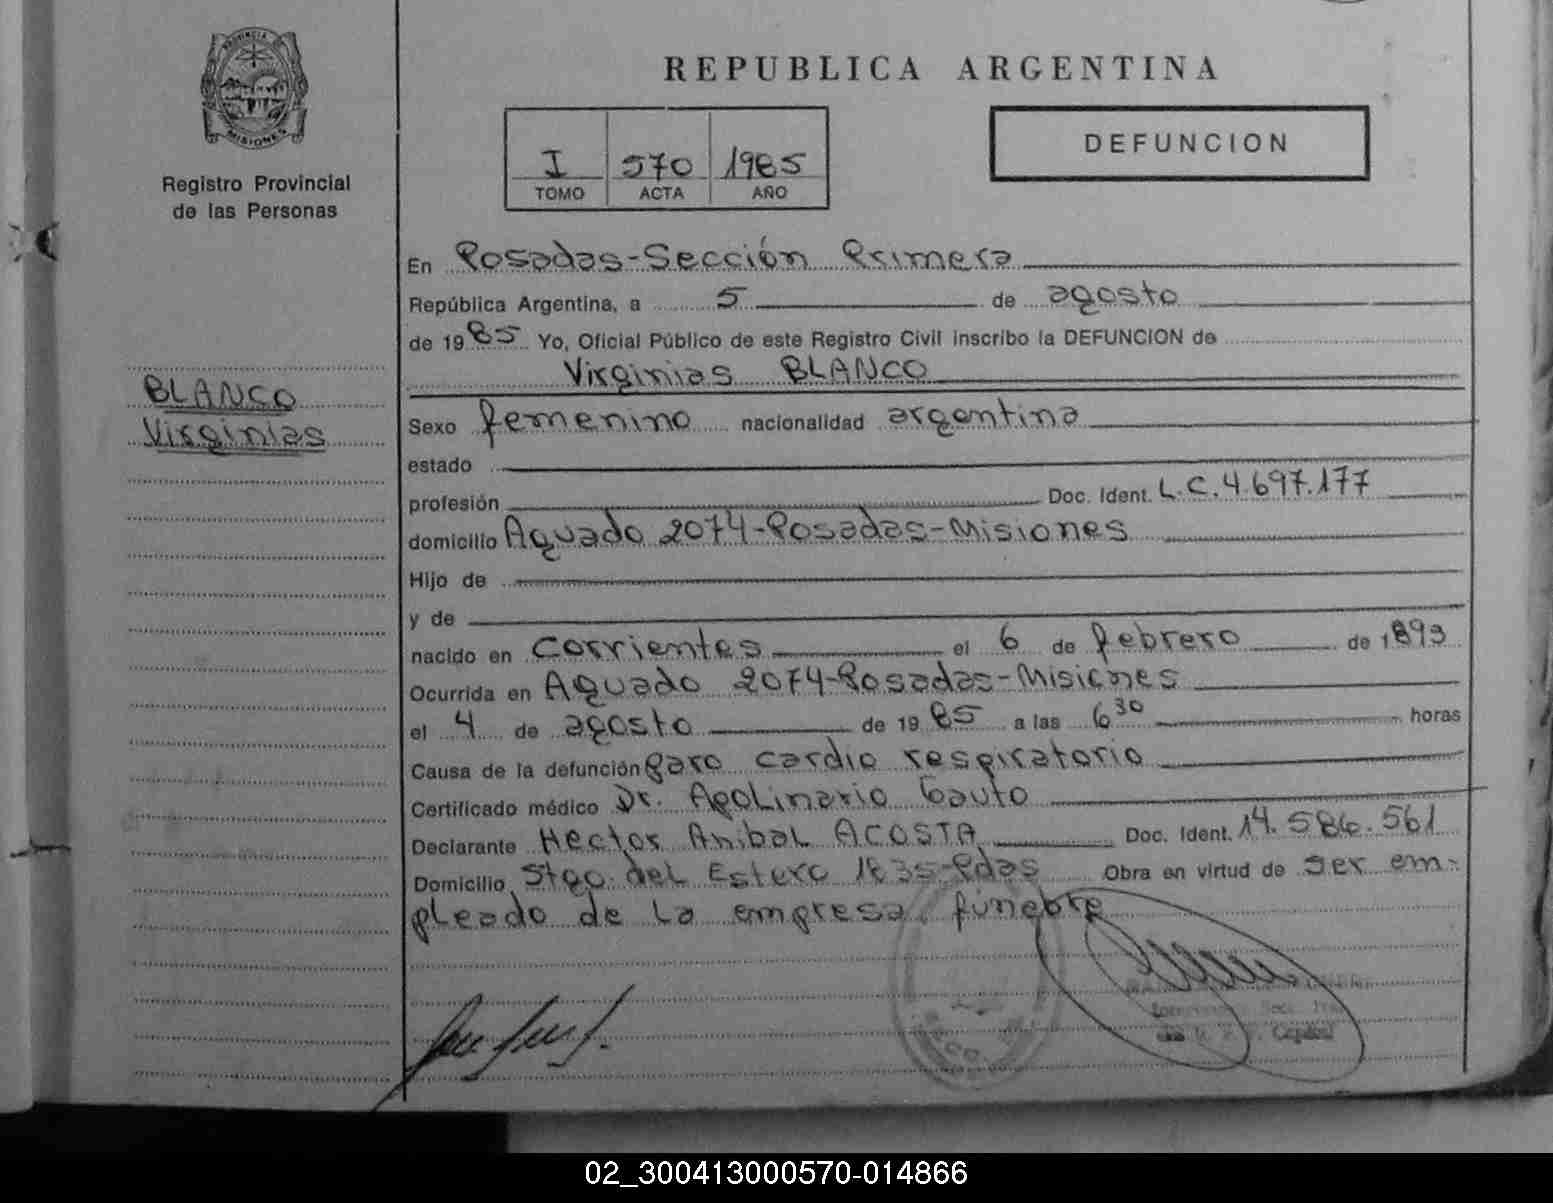 PROVINCIA
MISIONES
Registro Provincial
de las Personas
BLANCO
Virginias
REPUBLICA ARGENTINA
I 570 1985
TOMO ACTA AÑO
DEFUNCION
En Posadas-Sección Primera
República Argentina, a 5 de agosto
de 1985 Yo, Oficial Público de este Registro Civil inscribo la DEFUNCION de
Virginias BLANCO
Sexo femenino nacionalidad argentina
estado
profesión Doc. Ident. L.C.4.697.177
domicilio Aguado 2074-Posadas-Misiones
Hijo de
y de
nacido en Corrientes el 6 de febrero de 1893
Ocurrida en Aguado 2074-Posadas-Misiones
el 4 de agosto de 1985 a las 6 30 horas
Causa de la defunción paro cardio respiratorio
Certificado médico Dr. Apolinario Gauto
Declarante Hector Anibal ACOSTA Doc. Ident. 14.586.561
Domicilio Stgo. del Estero 1835-Pdas Obra en virtud de ser em-
pleado de la empresa fúnebre
Capital
02_300413000570-014866